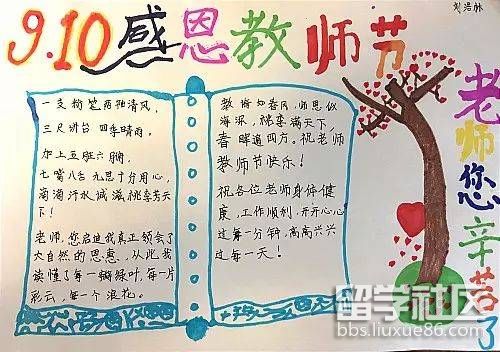 9.10感恩教师节
刘浩林
一支粉笔两袖清风,
三尺讲台 四季晴雨,
加上五脏六腑,
七嘴八舌 九思十分用心,
滴滴汗水诚滋桃李芳天
下!
老师,您启迪我真正领会了
大自然的恩惠,从此我
读懂了每一瓣绿叶,每一片
彩云,每一个浪花。
教诲如春风,师恩似
海深,桃李满天下,
春晖遍四方。祝老师
教师节快乐!
祝各位老师身体健
康,工作顺利,开开心心
过每一分钟,高高兴兴
过每一天!
老师您辛苦了
留学社区
bbs.liuxue86.com